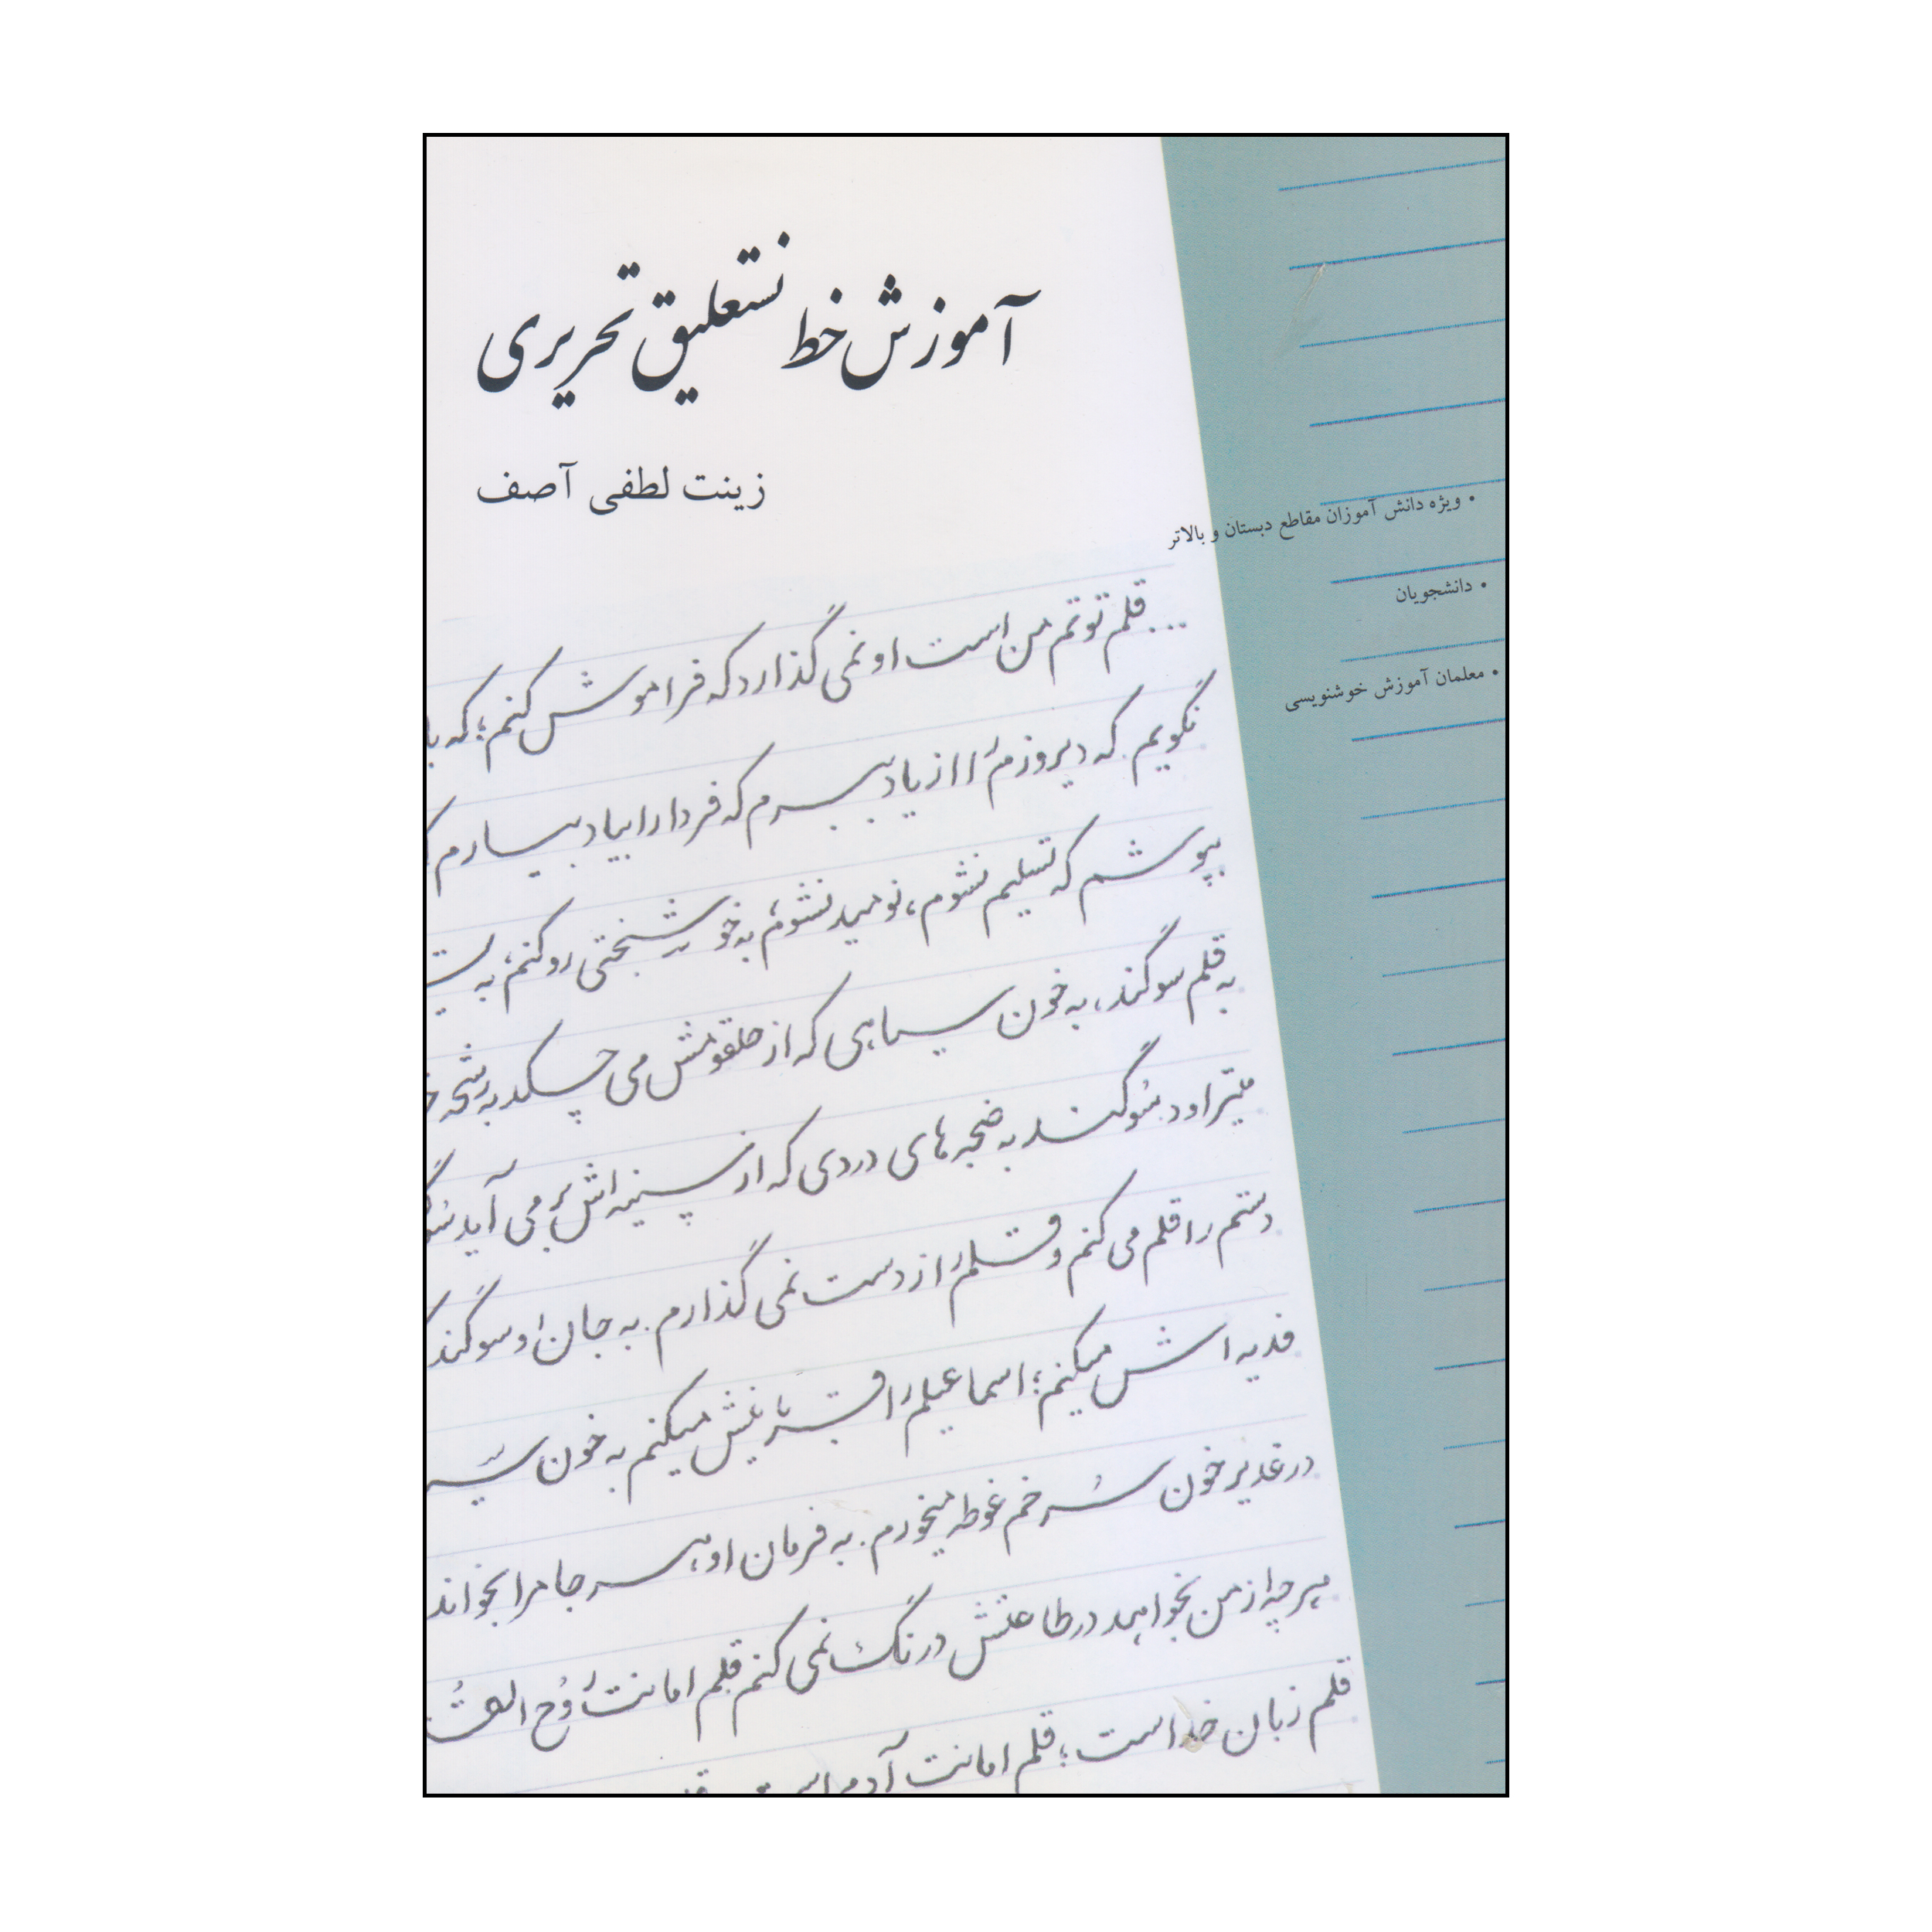 آموزش خط نستعلیق تحریری
زینت لطفی آصف
• ویژه دانش آموزان مقاطع دبستان و بالاتر
• دانشجویان
• معلمان آموزش خوشنویسی
... قلم توتم من است او نمی گذارد که فراموش کنم؛ که با
نگویم. که دیروزم را از یاد ببرم که فردا را بیاد بیارم
بپوشم که تسلیم نشوم، نومید نشوم، به خوشبختی رو کنم، به
به قلم سوگند، به خون سیاهی که از حلقومش می چکد به رشحه
میتراود سوگند به ضجه های دردی که از سینه اش بر می آید
دستم را قلم می کنم و قلم را از دست نمی گذارم. به جان او سوگند
فدیه اش میکنم؛ اسماعیلم را قربانیش میکنم به خون
در غدیر خون سرخم غوطه میخورم. به فرمان او، هر جا مرا بخواند
هر چه از من بخواهد در طاعتش درنگ نمی کنم قلم امانت روح
قلم زبان خداست؛ قلم امانت آدم است